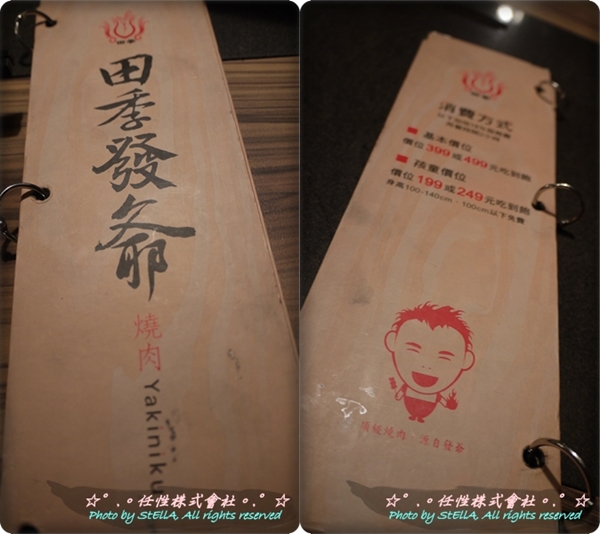 田季發爺
燒肉
Yakiniku
☆°.。任性株式會社。.°☆
Photo by StEllA, All rights reserved
消費方式
基本價位
價位399或499元吃到飽
孩童價位
價位199或249元吃到飽
身高100-140cm，100cm以下免費
頂級燒肉
☆°.。任性株式會社。.°☆
Photo by StEllA, All rights reserved